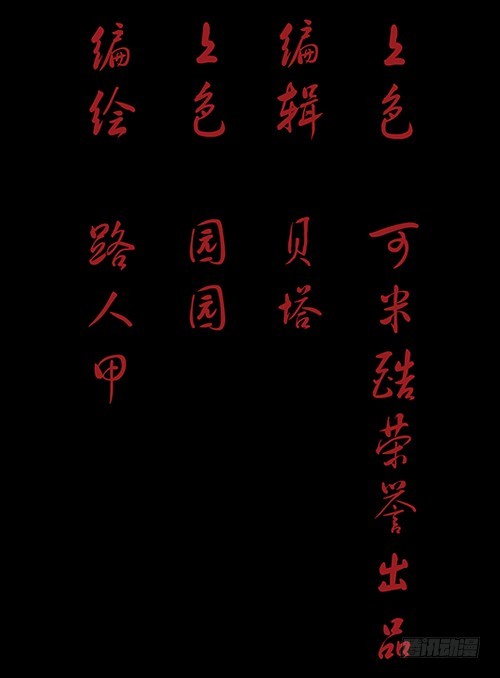 编绘 路人甲
上色 园园
编辑 贝塔
上色 可米酷荣誉出品
腾讯动漫